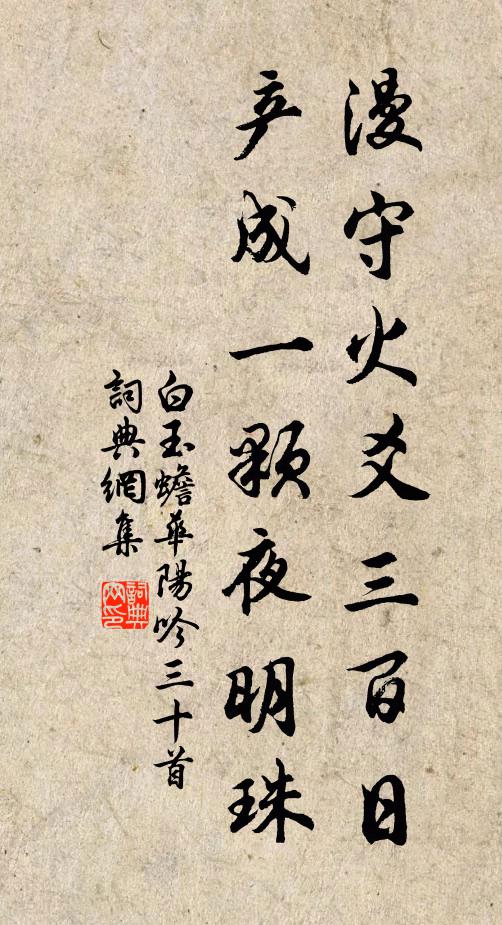 漫守火爻三百日
产成一顆夜明珠
白玉蟾華陽吟三十首
詞典網集
詞典
网印